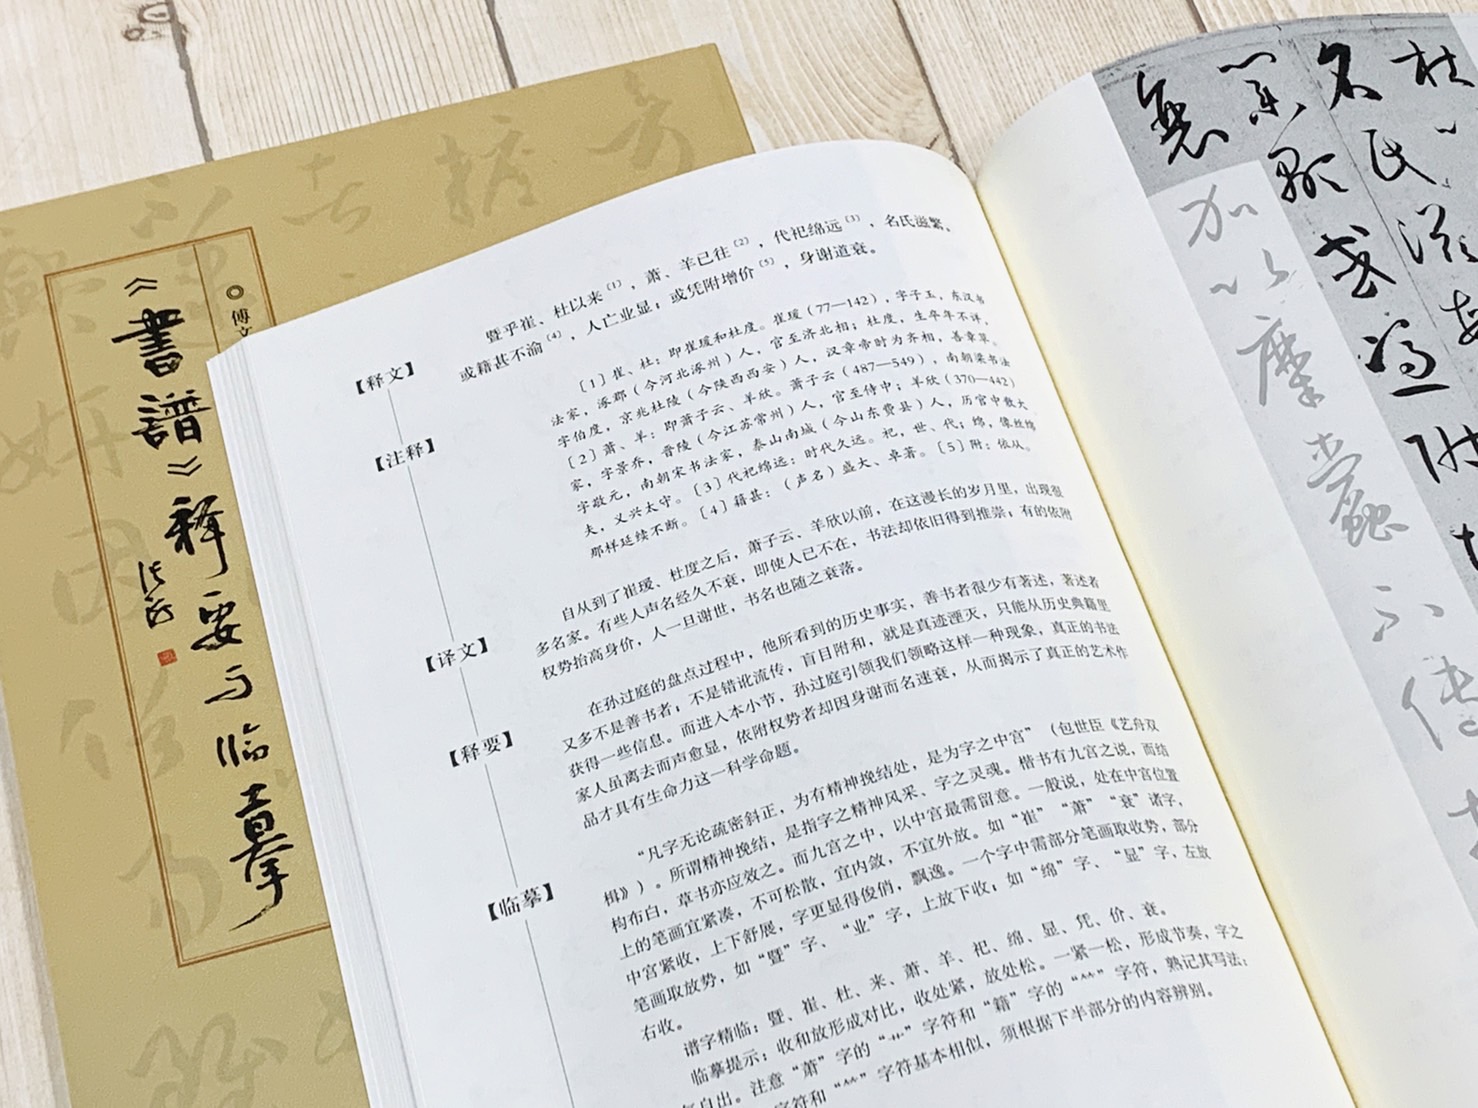 《書譜》释要与临摹
傅文
【释文】
暨乎崔、杜以来（1），萧、羊已往（2），代祀绵远（3），名氏滋繁。
或籍甚不渝（4），人亡业显；或凭附增价（5），身谢道衰。
【注释】
［1］崔、杜：即崔瑗和杜度。崔瑗（77—142），字子玉，东汉书
法家，涿郡（今河北涿州）人，官至济北相；杜度，生卒年不详，
字伯度，京兆杜陵（今陕西西安）人，汉章帝时为齐相，善章草。
［2］萧、羊：即萧子云、羊欣。萧子云（487—549），南朝梁书法
家，字景乔，晋陵（今江苏常州）人，官至侍中；羊欣（370—442）
字敬元，南朝宋书法家，泰山南城（今山东费县）人，历官中散大
夫，义兴太守。［3］代祀绵远：时代久远。祀，世、代；绵，像丝绵
那样延续不断。［4］籍甚：（声名）盛大、卓著。［5］附：依从。
【译文】
自从到了崔瑗、杜度之后，萧子云、羊欣以前，在这漫长的岁月里，出现很
多名家。有些人声名经久不衰，即使人已不在，书法却依旧得到推崇；有的依附
权势抬高身价，人一旦谢世，书名也随之衰落。
【释要】
在孙过庭的盘点过程中，他所看到的历史事实，善书者很少有著述，著述者
又多不是善书者；不是错讹流传，盲目附和，就是真迹湮灭，只能从历史典籍里
获得一些信息。而进入本小节，孙过庭引领我们领略这样一种现象，真正的书法
家人虽离去而声愈显，依附权势者却因身谢而名速衰，从而揭示了真正的艺术作
品才具有生命力这一科学命题。
【临摹】
“凡字无论疏密斜正，为有精神挽结处，是为字之中宫”（包世臣《艺舟双
楫》）。所谓精神挽结，是指字之精神风采、字之灵魂。楷书有九宫之说，而结
构布白，草书亦应效之。而九宫之中，以中宫最需留意。一般说，处在中宫位置
上的笔画宜紧凑，不可松散，宜内敛，不宜外放。如“崔”“萧”“衰”诸字，
中宫紧收，上下舒展，字更显得俊俏，飘逸。一个字中需部分笔画取收势，部分
笔画取放势，如“暨”字、“业”字，上放下收；如“绵”字、“显”字，左放
右收。
谱字精临：暨、崔、杜、来、萧、羊、祀、绵、显、凭、价、衰。
临摹提示：收和放形成对比，收处紧，放处松。一紧一松，形成节奏，字之
自出。注意“萧”字的“艹”字符和“籍”字的“⺮”字符，熟记其写法；
字符和“⺮”字符基本相似，须根据下半部分的内容辨别。
杜
名氏滋
或
加以糜蠹不传